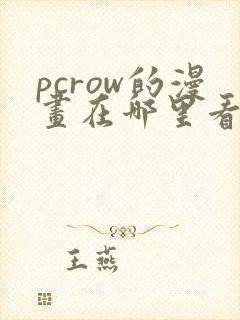 pcrow的漫
畫在哪里看
王燕